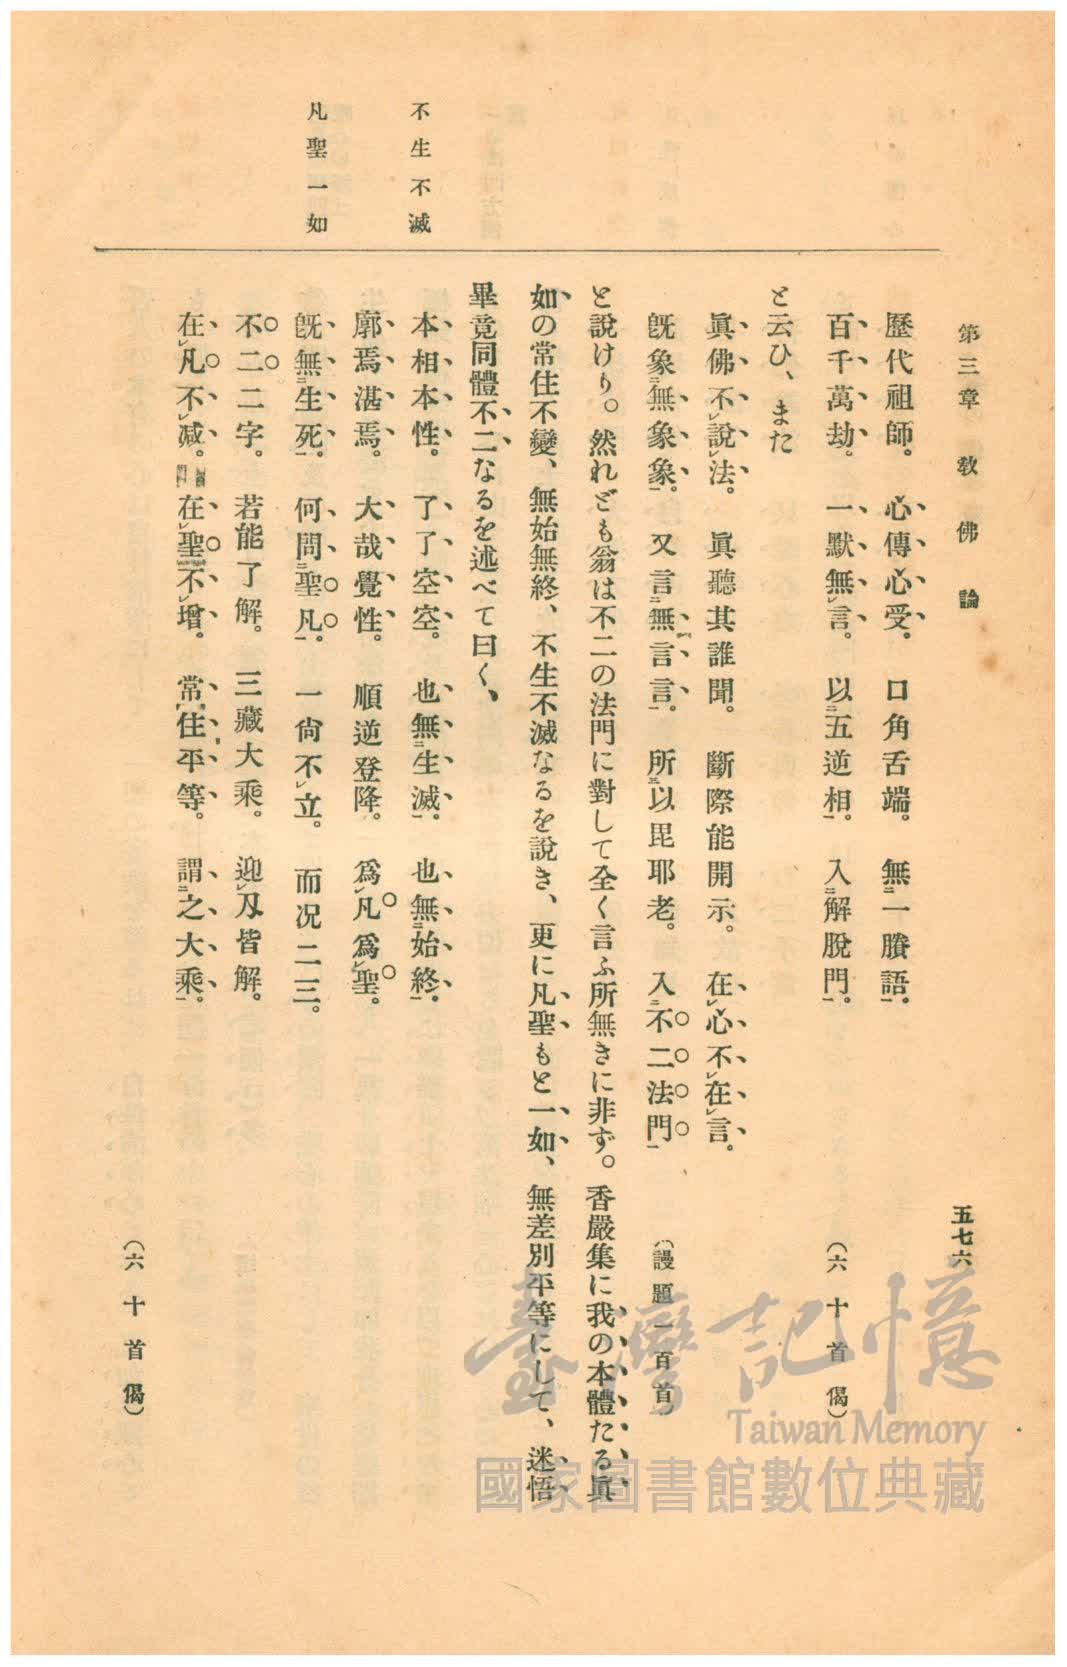 第三章 敎佛論
五七六
歷代祖師。 心傳心受。 口角舌端。 無一賸語。
百千萬劫。 一默無言。 以五逆相。 入解脫門。 (六十首偈)
と云ひ、また
眞佛不說法。 眞聽其誰聞。 斷際能開示。 在心不在言。
旣象無象象。 又言無言言。 所以毘耶老。 入不二法門 (謾題一百首)
と說けり。然れども翁は不二の法門に對して全く言ふ所無きに非ず。香嚴集に我の本體たる眞
如の常住不變、無始無終、不生不滅なるを說き、更に凡聖もと一如、無差別平等にして、迷悟
畢竟同體不二なるを述べて曰く、
不生不滅
本相本性。 了了空空。 也無生滅。 也無始終。
廓焉湛焉。 大哉覺性。 順逆登降。 爲凡爲聖。
凡聖一如
旣無生死。 何問聖凡。 一尙不立。 而况二三。
不二二字。 若能了解。 三藏大乘。 迎刄皆解。
在凡不减。 在聖不增。 常住平等。 謂之大乘。
(六十首偈)
臺灣記憶
Taiwan Memory
國家圖書館數位典藏